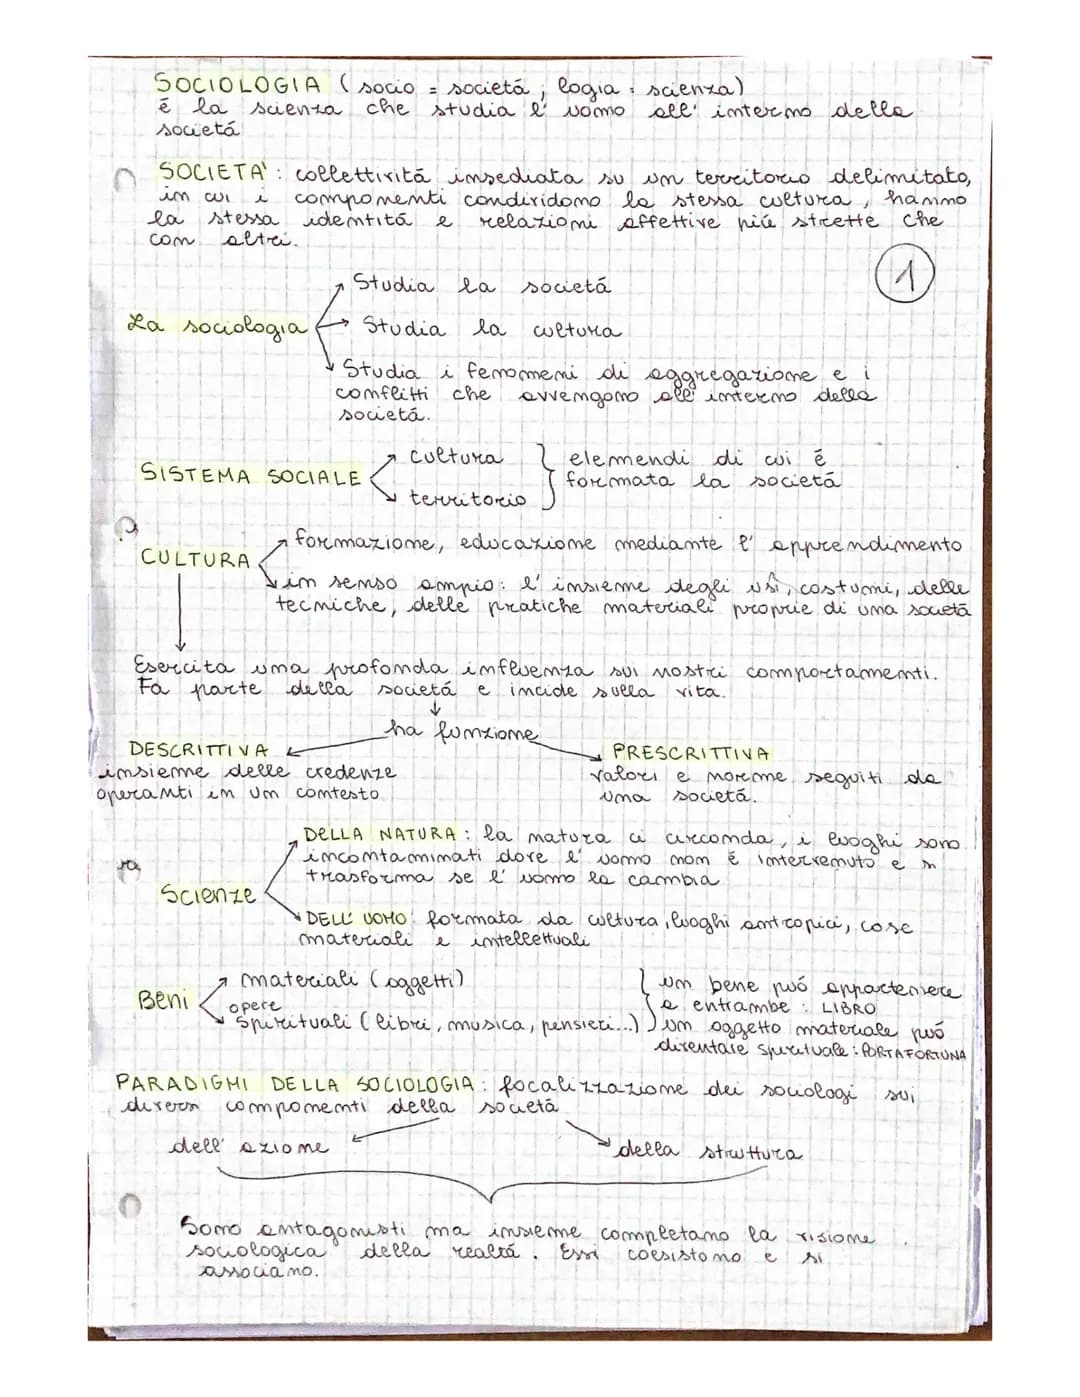 SOCIOLOGIA ( socio = società ; logia = scienza)
é la scienza che studia l' uomo all' interno della
società
SOCIETA' : collettività insediata su un territorio delimitato,
in cui i componenti condividono la stessa cultura, hanno
la stessa identità e relazioni affettive più strette che
con altri.
1
Studia la società
La sociologia Studia la cultura
Studia i fenomeni di aggregazione e i
conflitti che avvengono all' interno della
società.
SISTEMA SOCIALE cultura elemendi di cui é
territorio formata la società
CULTURA formazione, educazione mediante l' apprendimento
in senso ampio: l' insieme degli usi, costumi, delle
tecniche, delle pratiche materiali proprie di una società
Esercita una profonda influenza sui nostri comportamenti.
Fa parte della società e incide sulla vita.
ha funzione
DESCRITTIVA PRESCRITTIVA
insieme delle credenze valori e norme seguiti da
operanti in un contesto una società.
DELLA NATURA : la natura ci circonda, i luoghi sono
incontaminati dove l' uomo non é intervenuto e si
trasforma se l' uomo la cambia
Scienze
DELL' UOMO: formata da cultura, luoghi antropici, cose
materiali e intellettuali
materiali (oggetti) un bene può appartenere
Beni opere a entrambe : LIBRO
spirituali (libri, musica, pensieri...) un oggetto materiale può
diventare spirituale : PORTAFORTUNA
PARADIGMI DELLA SOCIOLOGIA : focalizzazione dei sociologi sui
diversi componenti della società
dell' azione della struttura
Sono antagonisti ma insieme completano la visione
sociologica della realtà. Essi coesistono e si
associano.